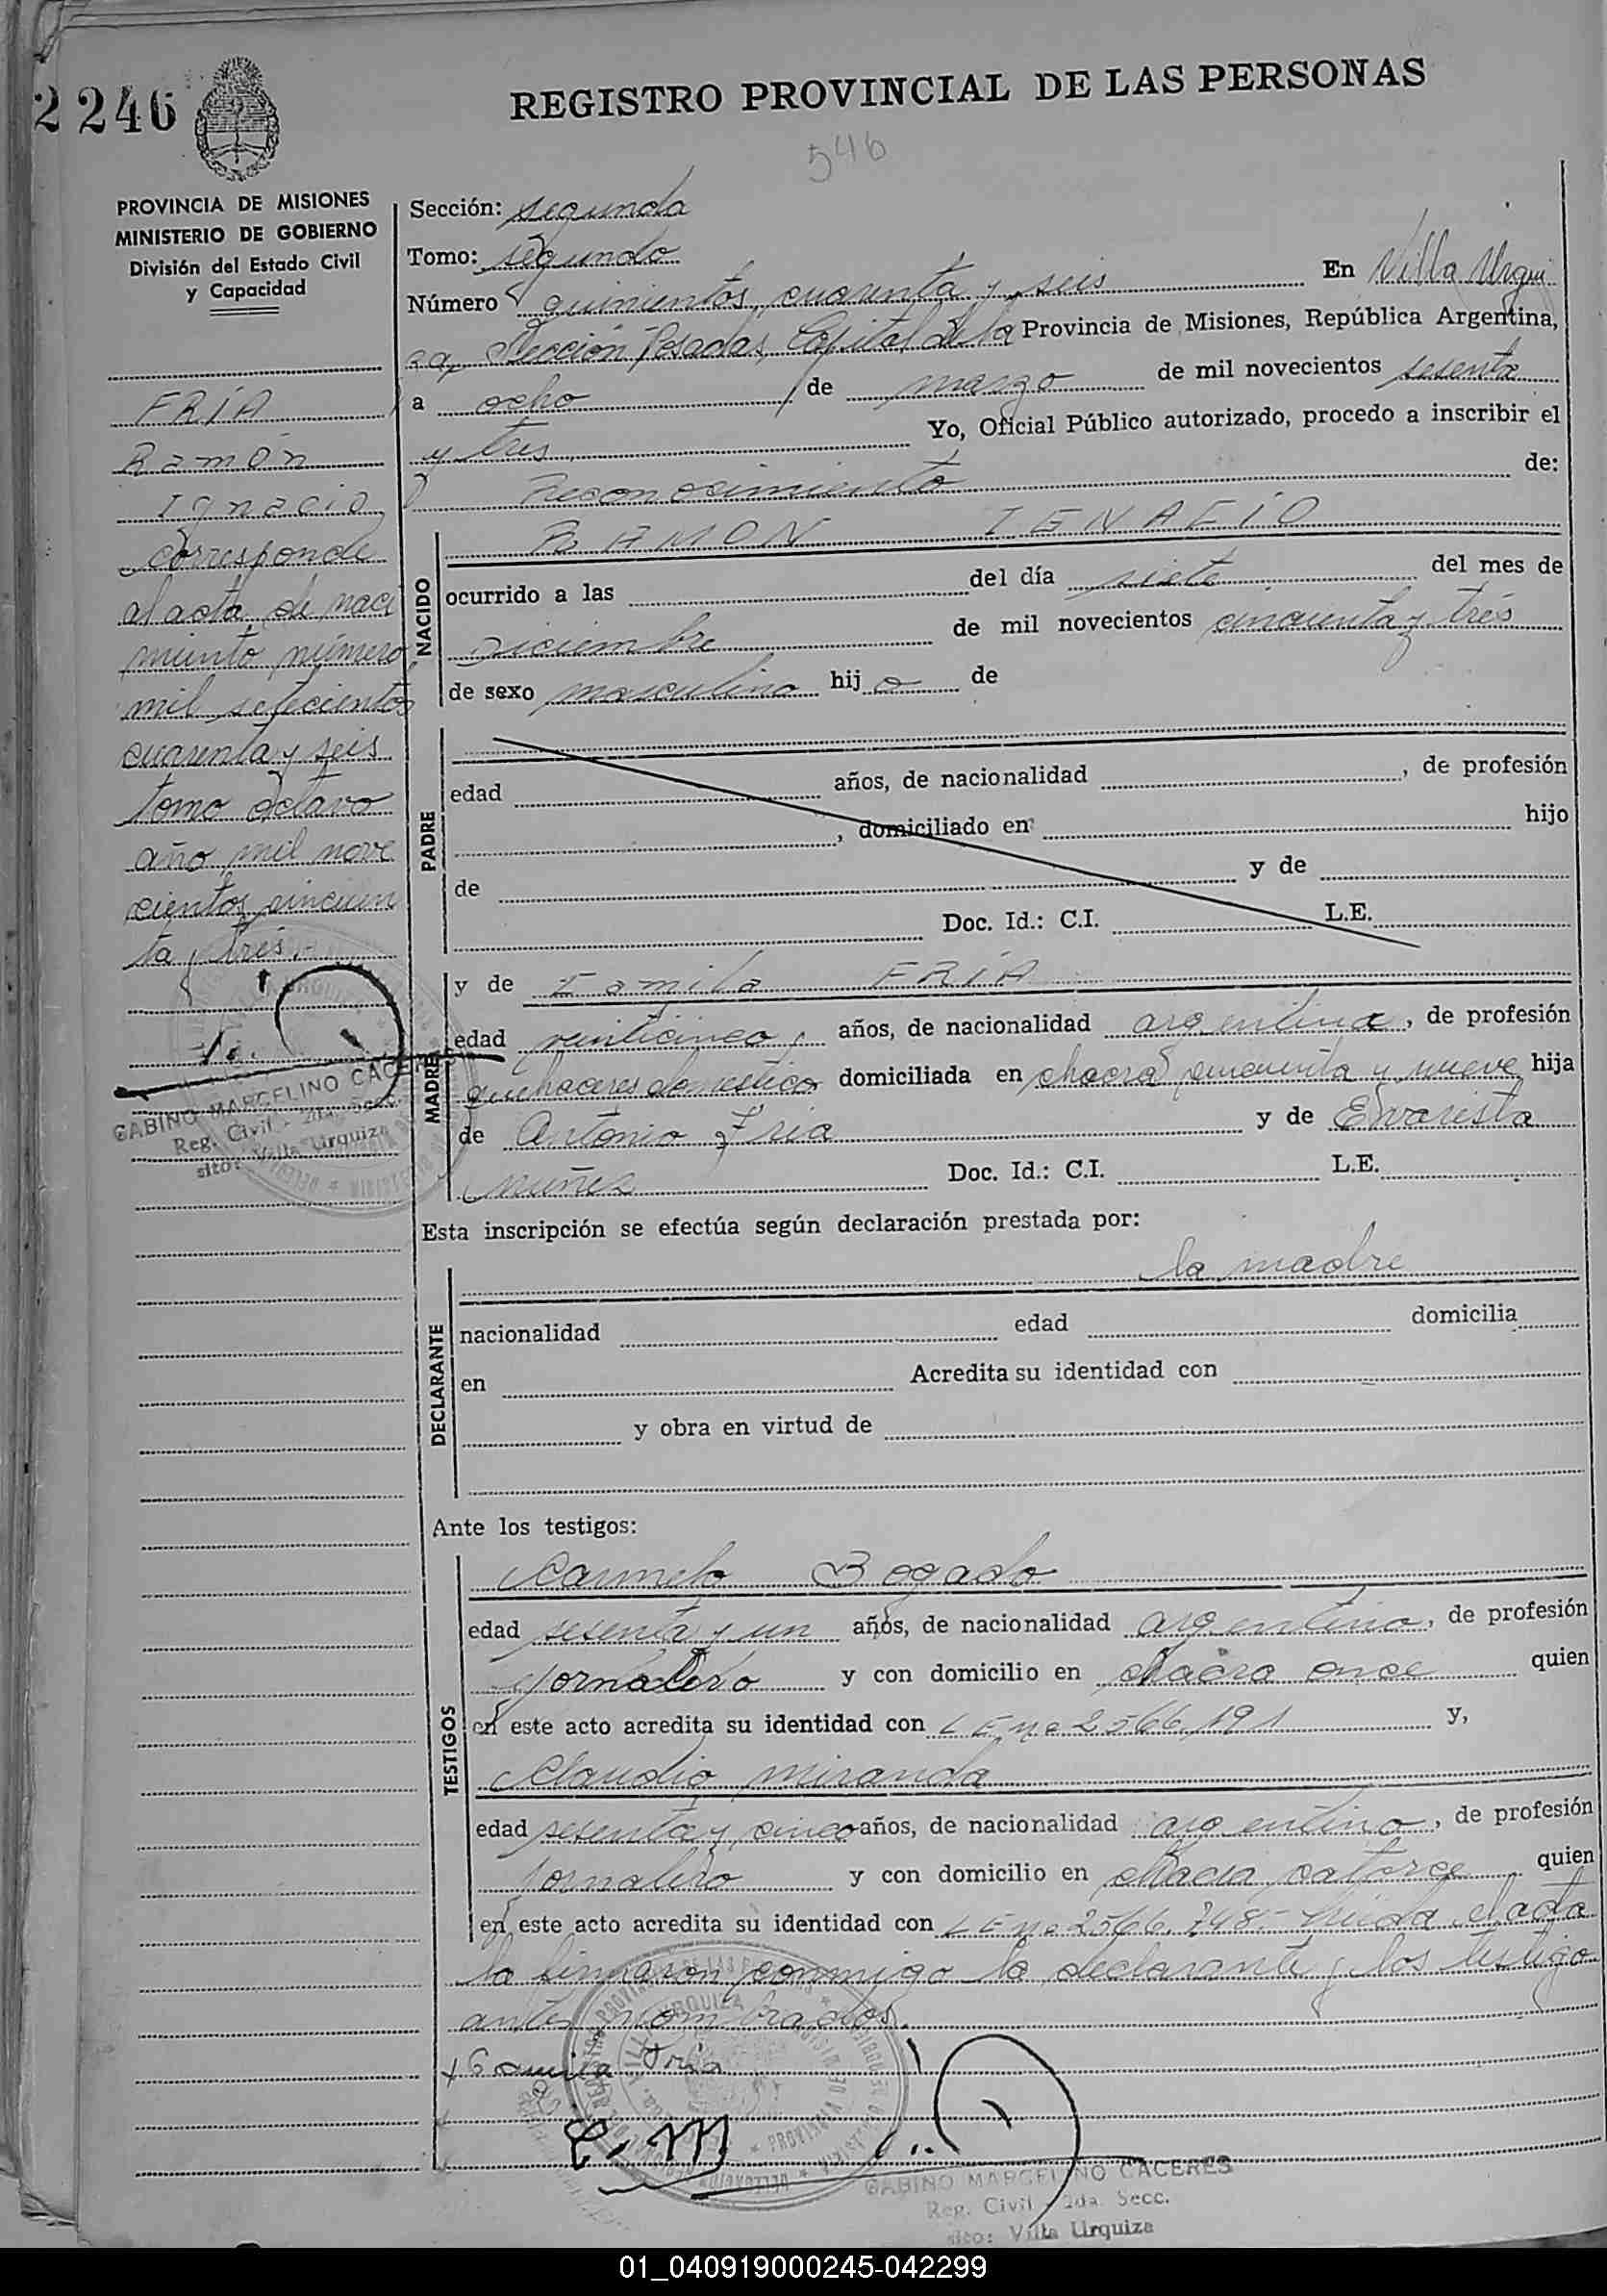 2246
REGISTRO PROVINCIAL DE LAS PERSONAS
546
PROVINCIA DE MISIONES
MINISTERIO DE GOBIERNO
División del Estado Civil
y Capacidad
FRÍA
Ramón
Ignacio
Corresponde
al acta de naci
miento número
mil setecientos
cuarenta y seis
tomo octavo
año mil nove
cientos cincuen
ta y tres.-
GABINO MARCELINO CACERES
Reg. Civil - 2da. Secc.
sito: Villa Urquiza
Sección: segunda
Tomo: segundo
Número quinientos cuarenta y seis En Villa Urqui
za, Sección Posadas, Capital de la Provincia de Misiones, República Argentina,
a ocho de marzo de mil novecientos sesenta
y tres Yo, Oficial Público autorizado, procedo a inscribir el
Reconocimiento de:
NACIDO
RAMON IGNACIO
ocurrido a las del día siete del mes de
Diciembre de mil novecientos cincuenta y tres
de sexo masculino hijo de
PADRE
edad años, de nacionalidad , de profesión
, domiciliado en hijo
de y de
Doc. Id.: C.I. L.E.
MADRE
y de Eamila FRÍA
edad veinticinco, años, de nacionalidad argentina, de profesión
quehaceres domestico domiciliada en chacra cincuenta y nueve hija
de Antonio Fria y de Evarista
nuñez Doc. Id.: C.I. L.E.
Esta inscripción se efectúa según declaración prestada por:
la madre
DECLARANTE
nacionalidad edad domicilia
en Acredita su identidad con
y obra en virtud de
Ante los testigos:
TESTIGOS
Carmelo Bogado
edad sesenta y un años, de nacionalidad argentino, de profesión
jornalero y con domicilio en chacra once quien
en este acto acredita su identidad con LE nº 2566.191 y,
Claudio miranda
edad sesenta y cinco años, de nacionalidad argentino, de profesión
jornalero y con domicilio en chacra catorce quien
en este acto acredita su identidad con LE nº 2566.248.- leida el acta
la firmaron conmigo la declarante y los testigo
antes nombrados.
+ Camila Fria
C. M
GABINO MARCELINO CACERES
Reg. Civil - 2da. Secc.
sito: Villa Urquiza
01_040919000245-042299